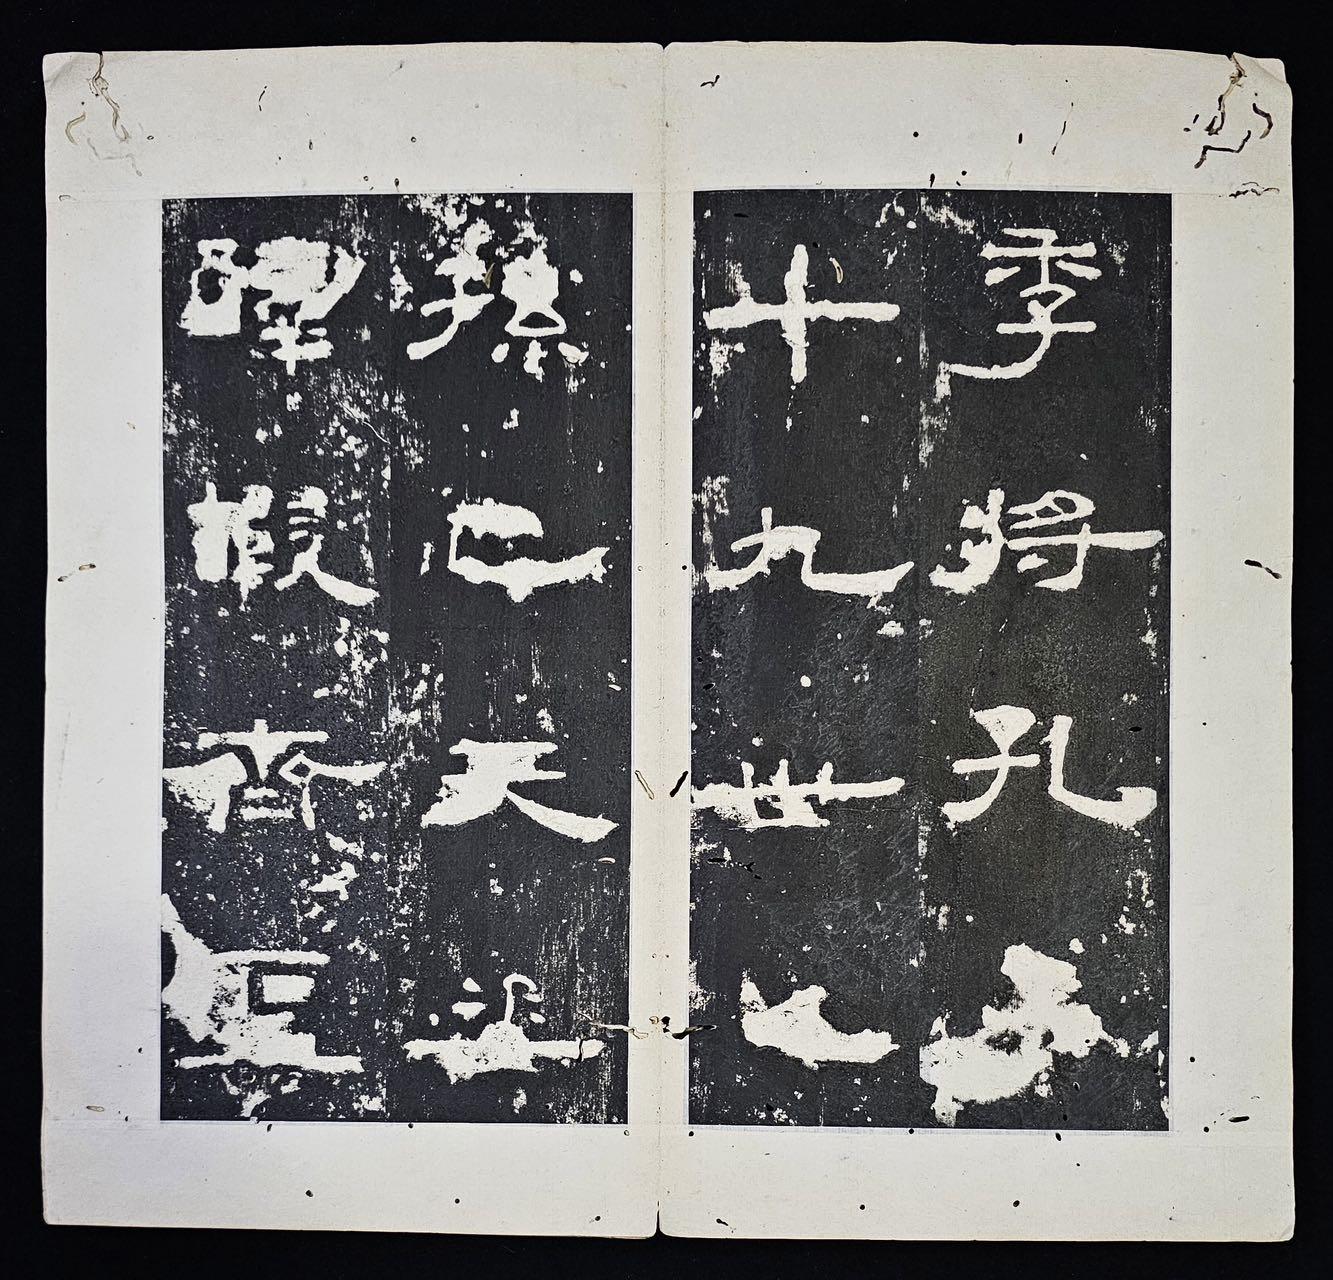 季將孔子
十九世之
孫也天姿
醇嘏齊聖